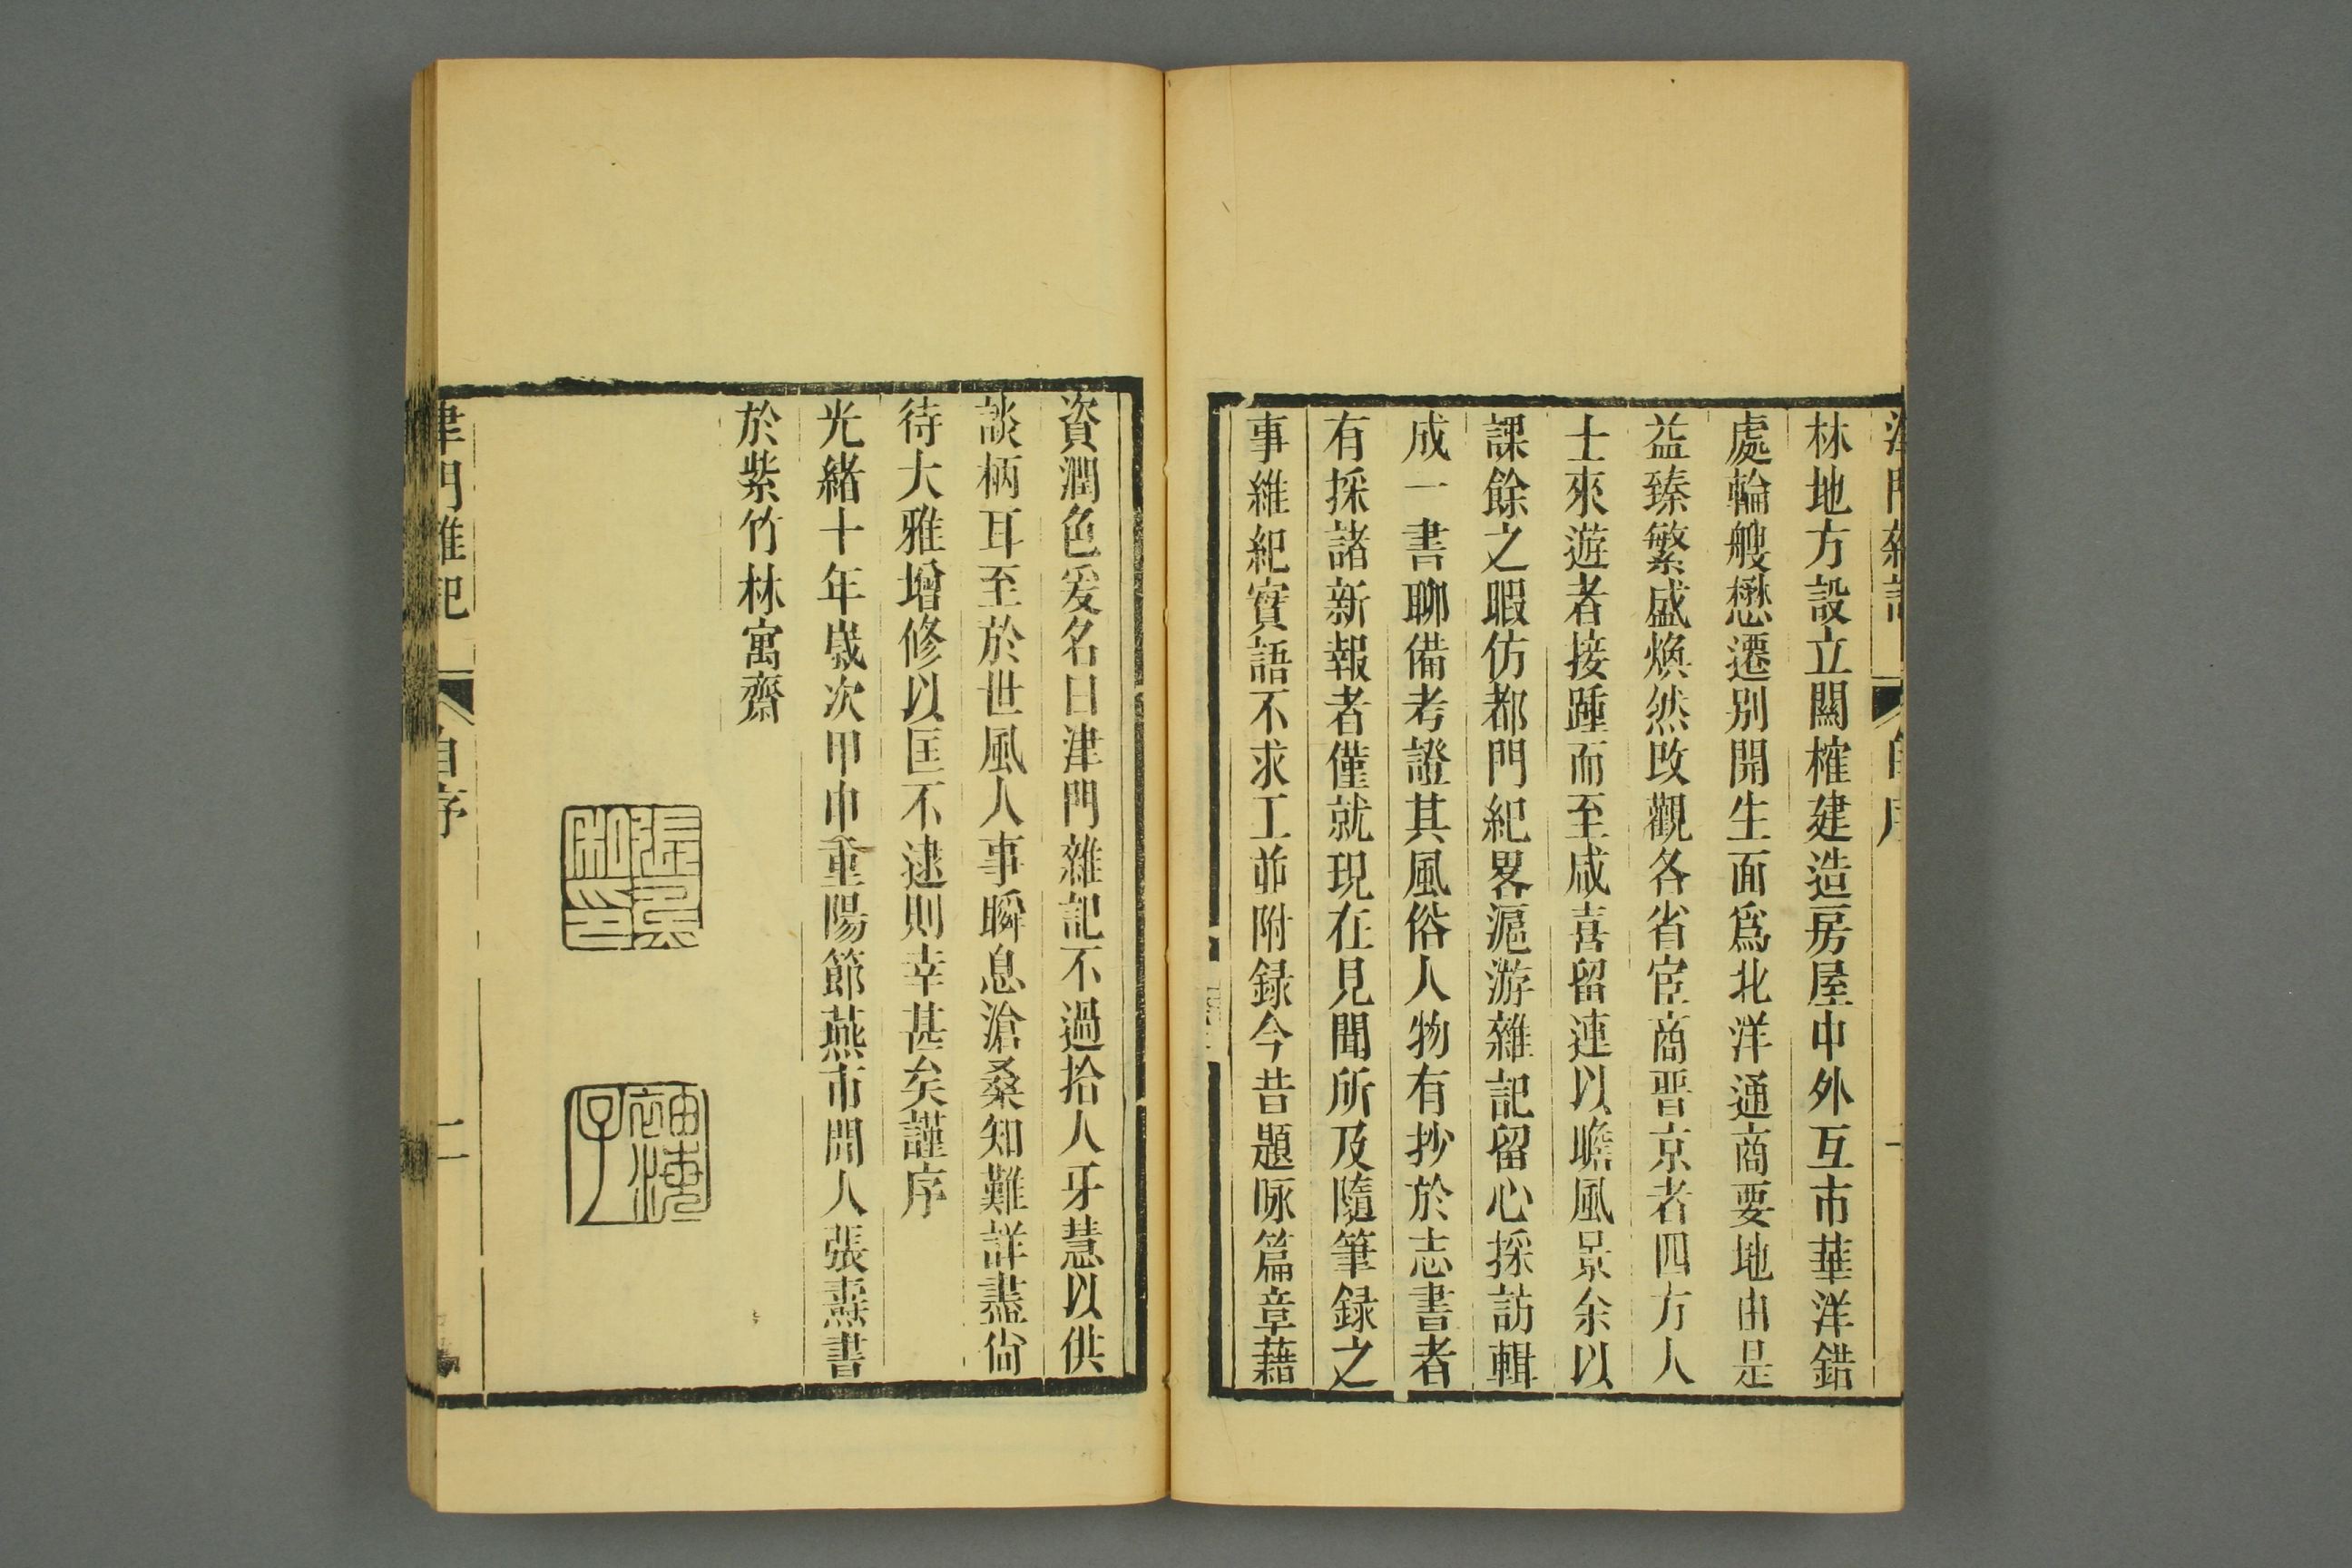 津門雜記
自序
一
林地方設立關榷建造房屋中外互市華洋錯
處輪艘懋遷別開生面爲北洋通商要地由是
益臻繁盛煥然改觀各省宦商晋京者四方人
士來遊者接踵而至咸喜留連以瞻風景余以
課餘之暇仿都門紀畧滬游雜記留心採訪輯
成一書聊備考證其風俗人物有抄於志書者
有採諸新報者僅就現在見聞所及隨筆録之
事維紀實語不求工並附録今昔題咏篇章藉
資潤色爰名曰津門雜記不過拾人牙慧以供
談柄耳至於世風人事瞬息滄桑知難詳盡尙
待大雅增修以匡不逮則幸甚矣謹序
光緒十年歲次甲申重陽節燕市閒人張燾書
於紫竹林寓齋
津門雜記
自序
二